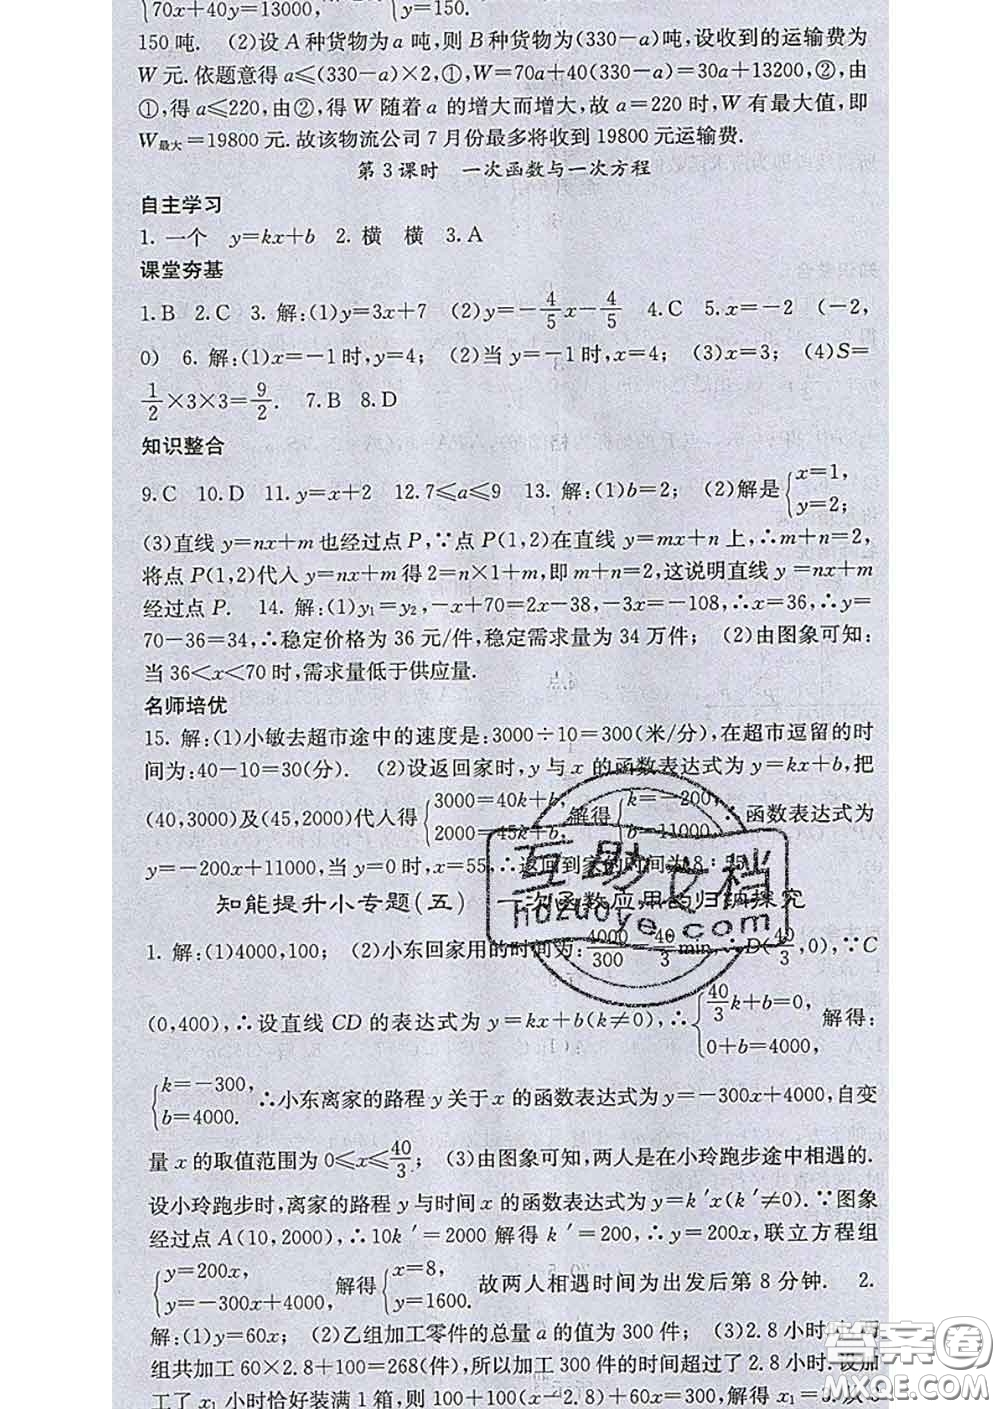 70x+40y=13000, y=150.
150吨. (2)设A种货物为a吨,则B种货物为(330-a)吨,设收到的运输费为
W元.依题意得a≤(330-a)×2,①,W=70a+40(330-a)=30a+13200,②,由
①,得a≤220,由②,得W随着a的增大而增大,故a=220时,W有最大值,即
W最大=19800元.故该物流公司7月份最多将收到19800元运输费.
第3课时 一次函数与一次方程
自主学习
1. 一个 y=kx+b 2. 横 横 3. A
课堂夯基
1. B 2. C 3. 解:(1)y=3x+7 (2)y=-4/5x-4/5 4. C 5. x=-2 (-2,
0) 6. 解:(1)x=-1时,y=4; (2)当y=-1时,x=4; (3)x=3; (4)S=
1/2×3×3=9/2. 7. B 8. D
知识整合
9. C 10. D 11. y=x+2 12. 7≤a≤9 13. 解:(1)b=2; (2)解是{x=1, y=2;
(3)直线y=nx+m也经过点P,∵点P(1,2)在直线y=mx+n上,∴m+n=2,
将点P(1,2)代入y=nx+m得2=n×1+m,即m+n=2,这说明直线y=nx+m
经过点P. 14. 解:(1)y₁=y₂,-x+70=2x-38,-3x=-108,∴x=36,∴y=
70-36=34,∴稳定价格为36元/件,稳定需求量为34万件; (2)由图象可知:
当36<x<70时,需求量低于供应量.
名师培优
15. 解:(1)小敏去超市途中的速度是:3000÷10=300(米/分),在超市逗留的时
间为:40-10=30(分). (2)设返回家时,y与x的函数表达式为y=kx+b,把
(40,3000)及(45,2000)代入得{3000=40k+b, 2000=45k+b, 解得{k=-200, b=11000, ∴函数表达式为
y=-200x+11000,当y=0时,x=55,∴返回到家的时间为8:55.
知能提升小专题(五) 一次函数应用的归纳探究
1. 解:(1)4000,100; (2)小东回家用的时间为:4000/300=40/3 min,∴D(40/3,0),∵C
(0,400),∴设直线CD的表达式为y=kx+b(k≠0),∴{40/3k+b=0, 0+b=4000, 解得:
{k=-300, b=4000. ∴小东离家的路程y关于x的函数表达式为y=-300x+4000,自变
量x的取值范围为0≤x≤40/3; (3)由图象可知,两人是在小玲跑步途中相遇的.
设小玲跑步时,离家的路程y与时间x的函数表达式为y=k′x(k′≠0).∵图象
经过点A(10,2000),∴10k′=2000解得k′=200,∴y=200x,联立方程组
{y=200x, y=-300x+4000, 解得{x=8, y=1600. 故两人相遇时间为出发后第8分钟. 2.
解:(1)y=60x; (2)乙组加工零件的总量a的值为300件; (3)2.8小时时两
组共加工60×2.8+100=268(件),所以加工300件的时间超过了2.8小时.设加
工了x₁小时恰好装满1箱,则100+100(x-2.8)+60x=300,解得x₁=3.从3
互助文档
hdzuoye.com
答案圈